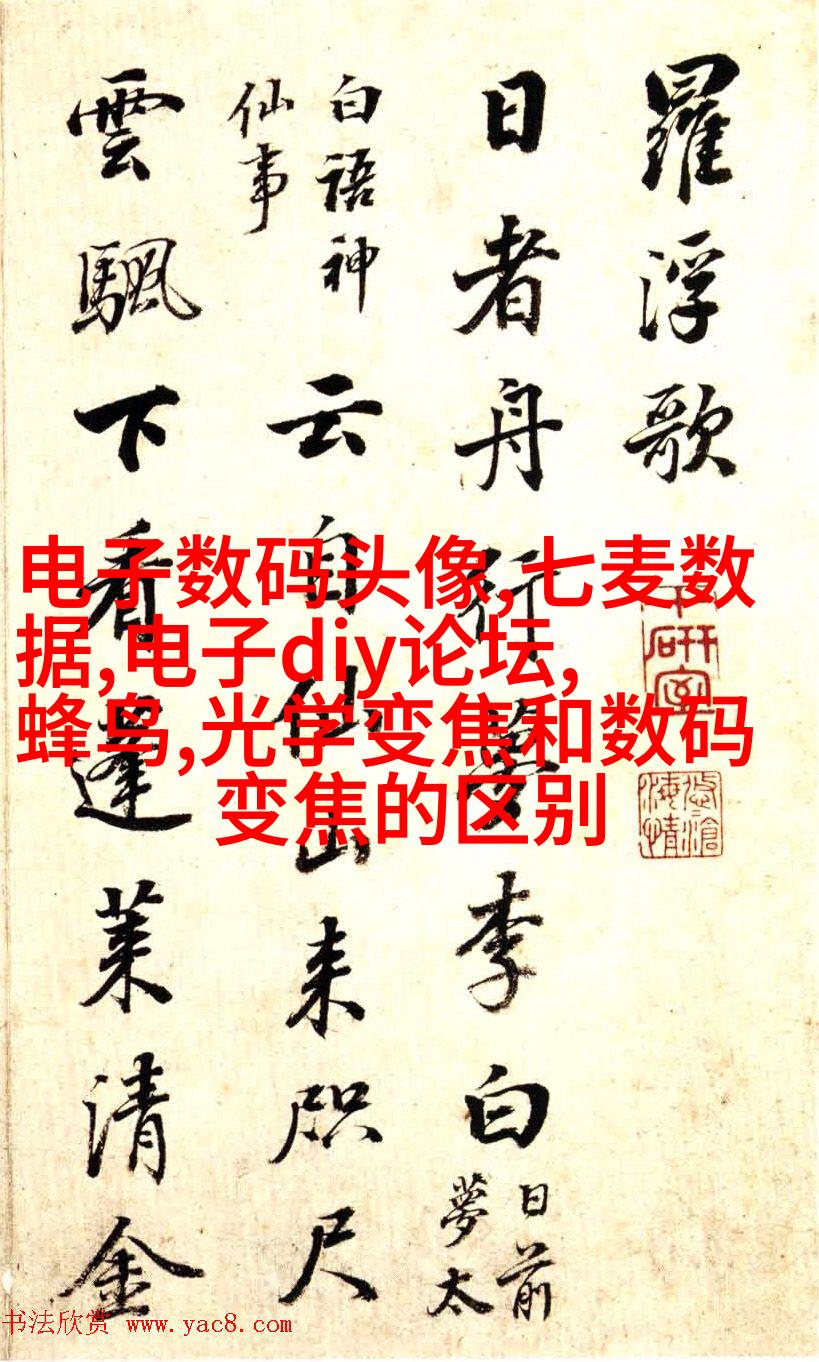 羅浮歌
日者舟夢李白
日前
夢太
白語神
仙事
云自仙山来咫尺
雲颿下看蓬莱清金
电子数码头像,七麦数
据,电子diy论坛,
蜂鸟,光学变焦和数码
变焦的区别
书法欣赏 www.yac8.com